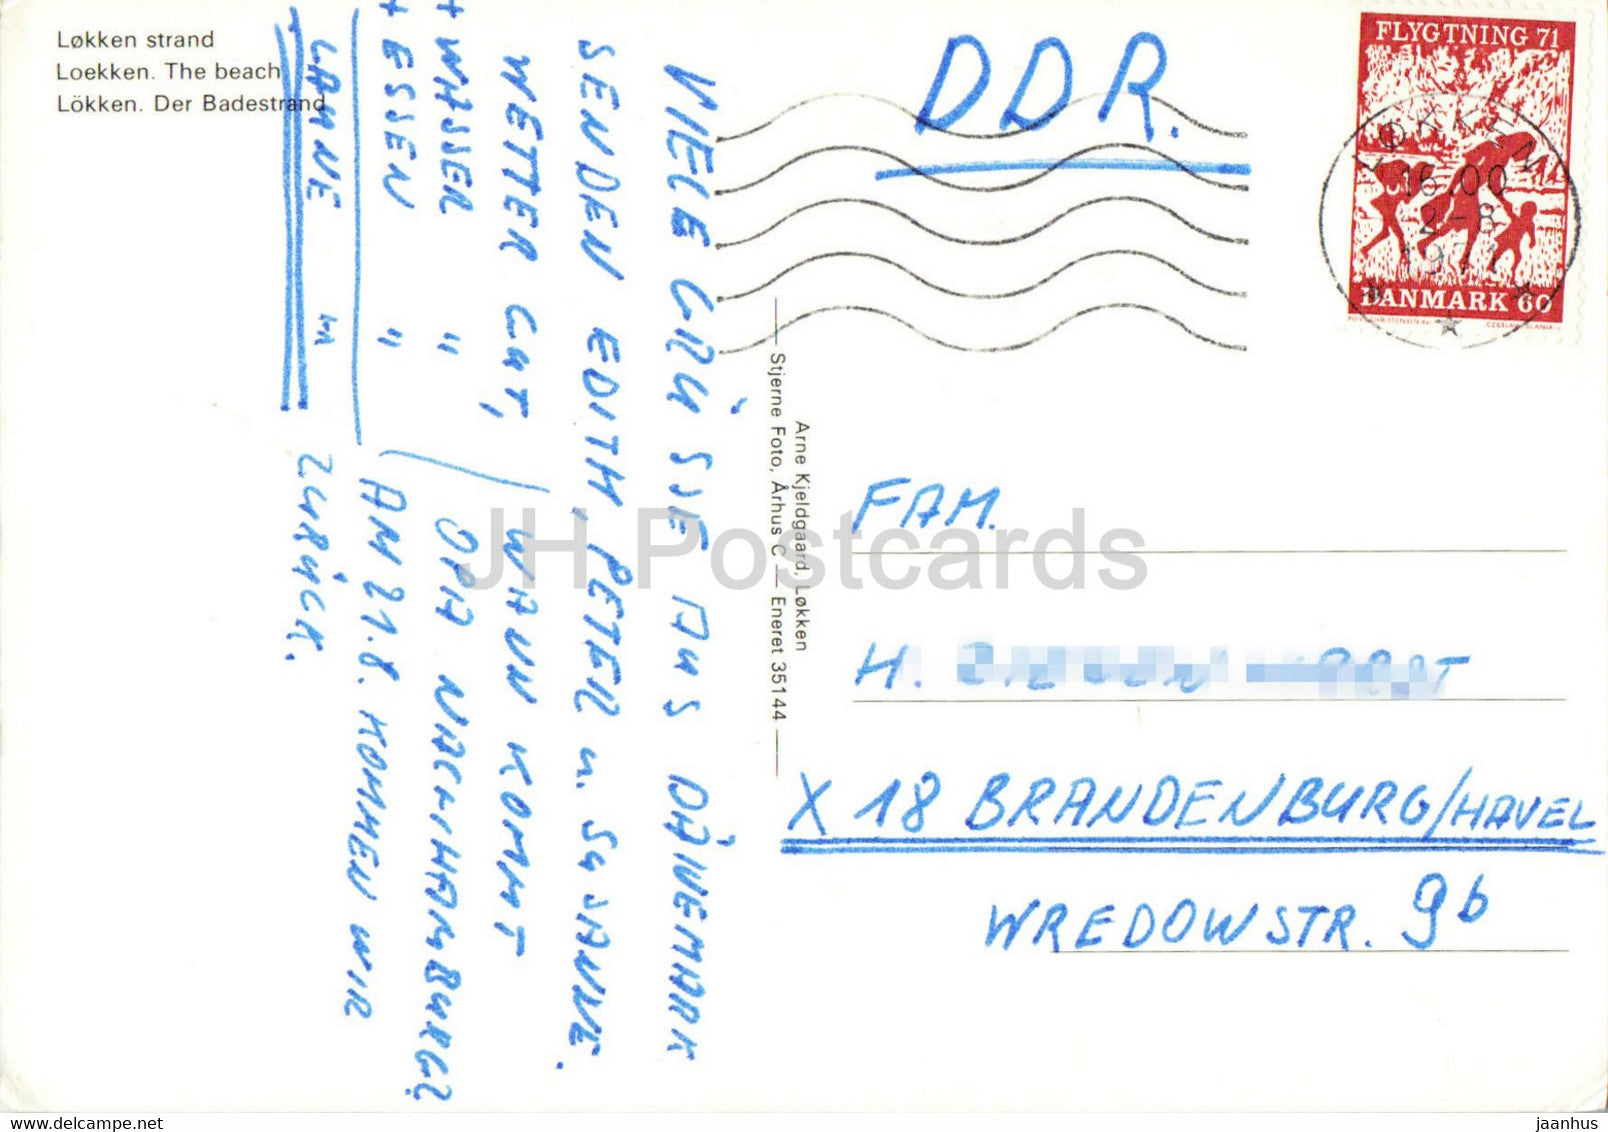 Løkken strand
Loekken. The beach
Lökken. Der Badestrand
DDR.
FLYGTNING 71
LØKKEN
16.00
2-8
1971
DANMARK 60
CZESLAW SLANIA
VIELE GRÜSSE AUS DÄNEMARK
SENDEN EDITH, PETER u. SUSANNE.
WETTER GUT, WANN KOMMT
+ WASSER " OPA NACH HAMBURG?
+ ESSEN " AM 21.8. KOMMEN WIR
+ LAUNE " ZURÜCK.
Arne Kjeldgaard, Løkken
Stjerne Foto, Århus C — Eneret 35144
FAM.
H.
X 18 BRANDENBURG/HAVEL
WREDOWSTR. 9b
JH Postcards
jaanhus
www.delcampe.net